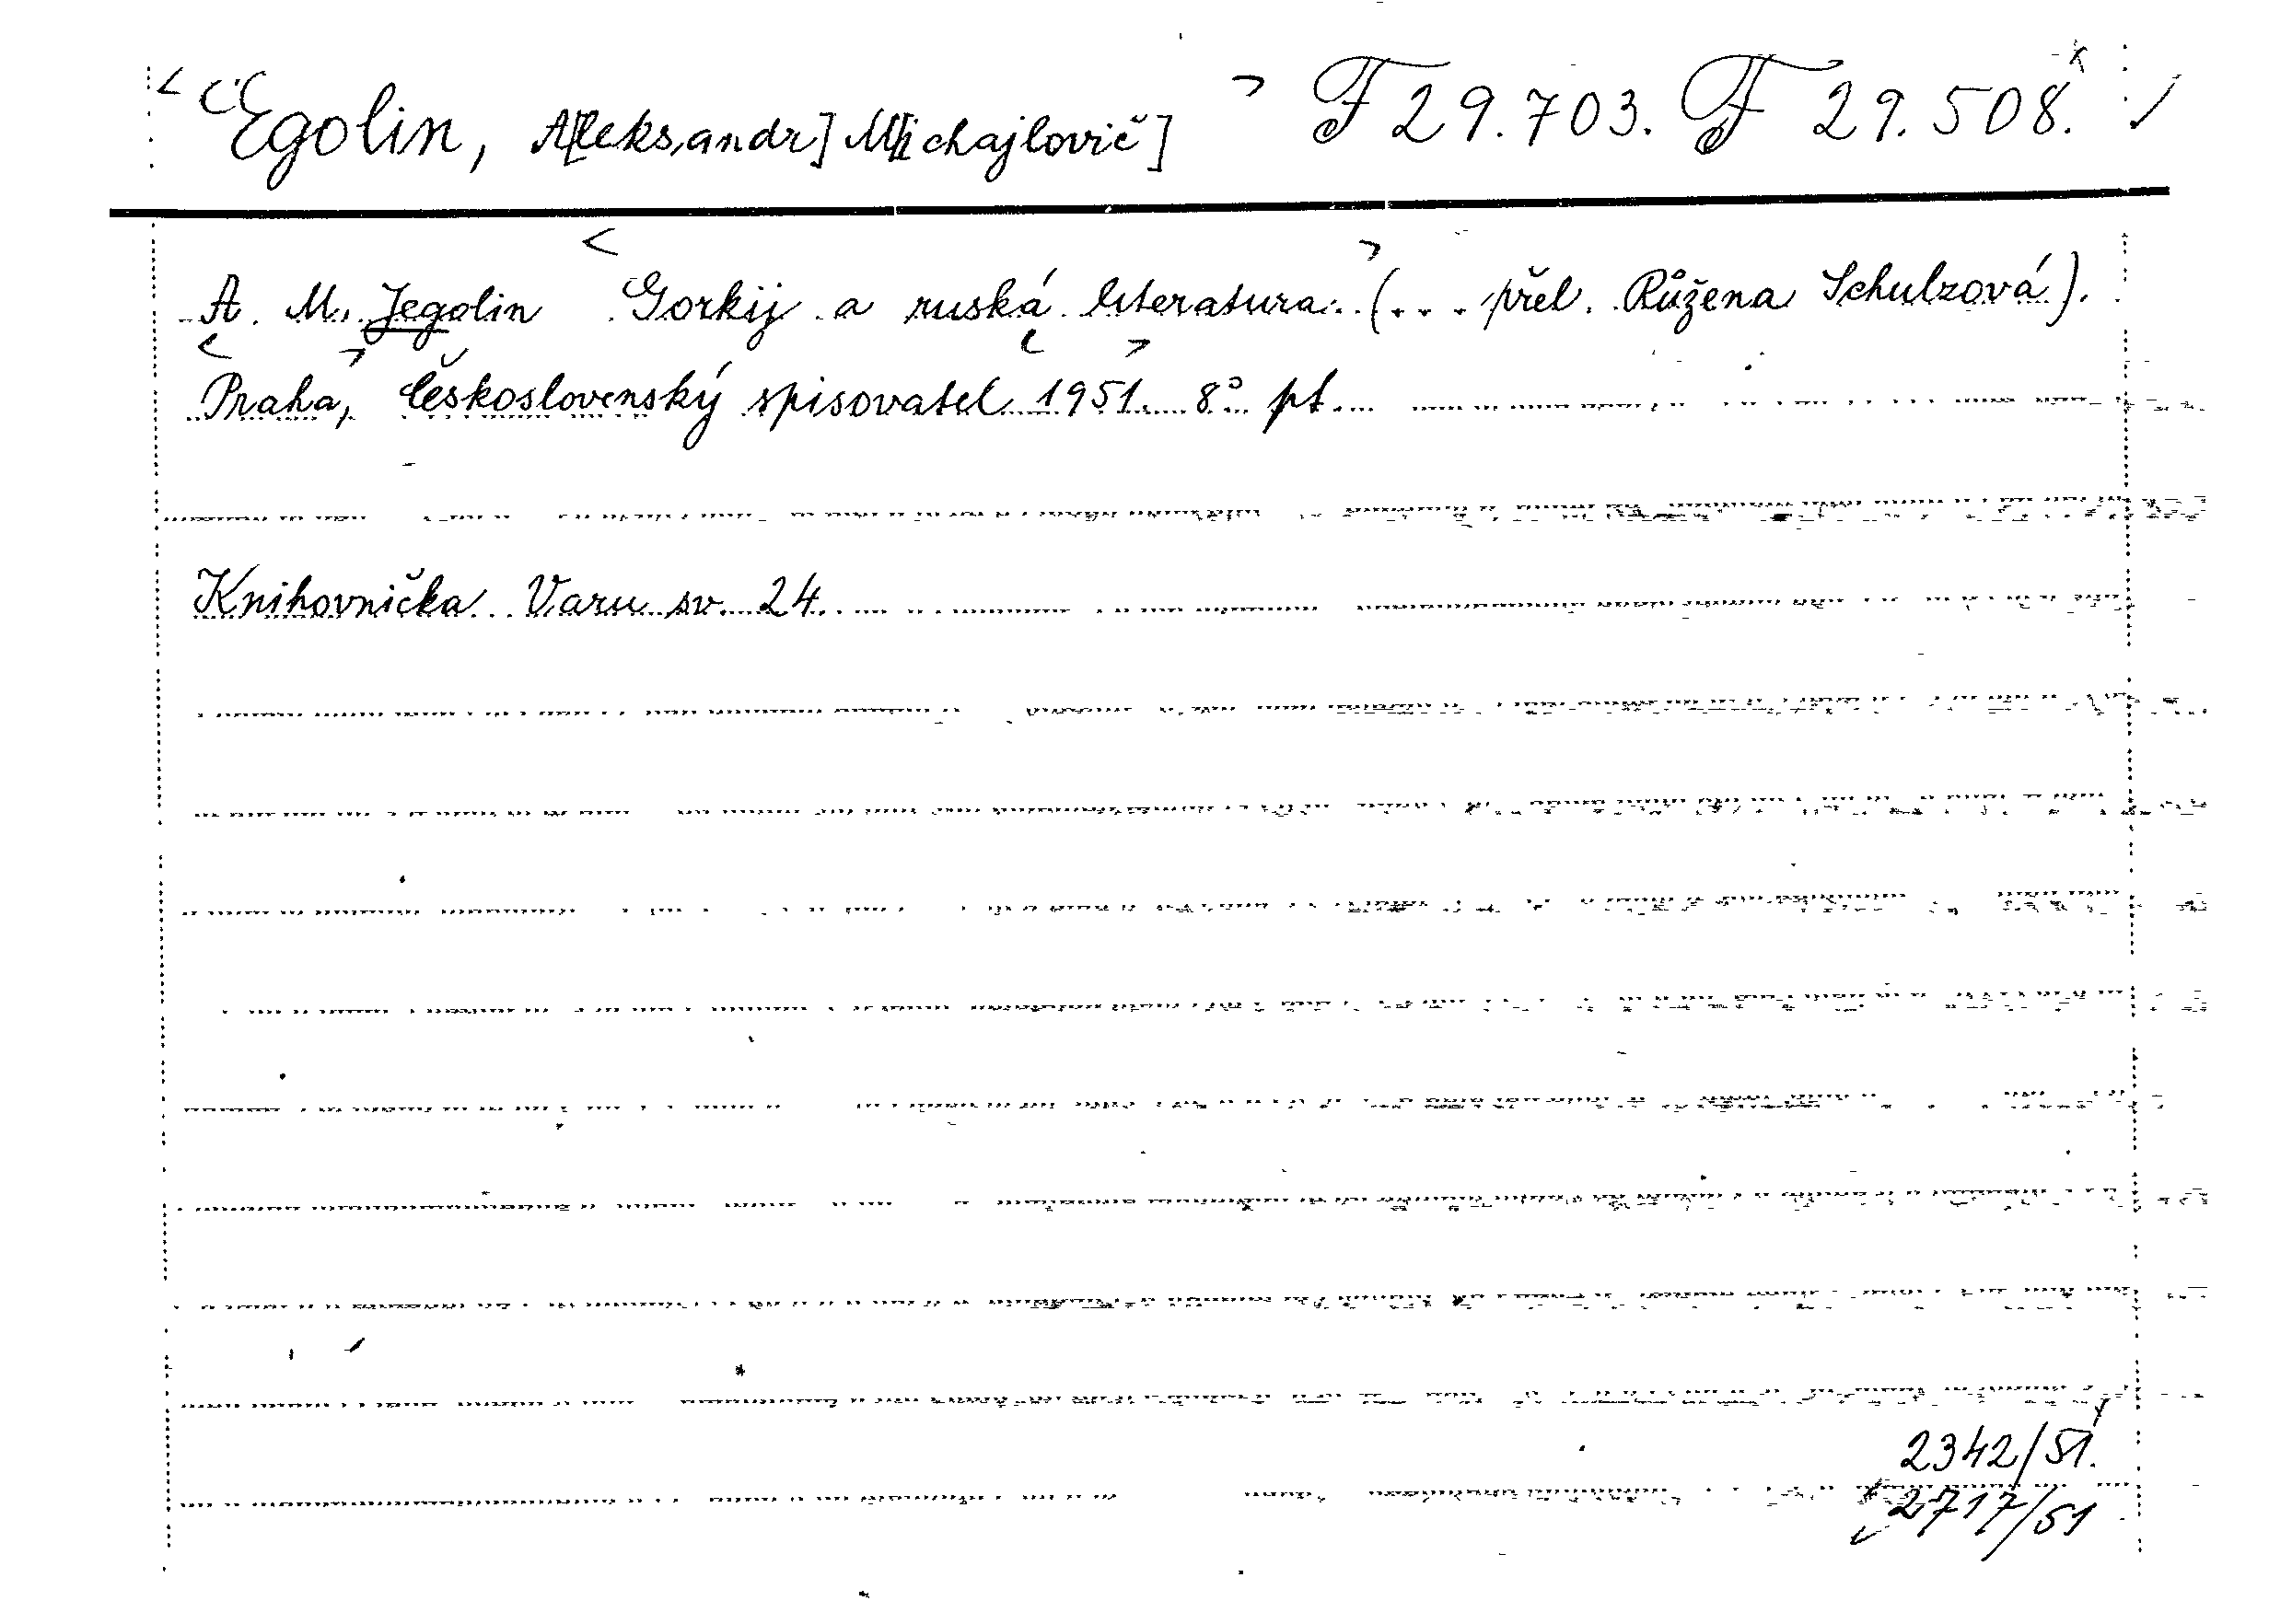 Egolin, A[leksandr] M[ichajlovič] F 29.703. F 29.508.
A. M. Jegolin Gorkij a ruská literatura. (... přel. Růžena Schulzová).
Praha, Československý spisovatel 1951. 8° pt.
Knihovnička Varu sv. 24.
2342/51.
2717/51